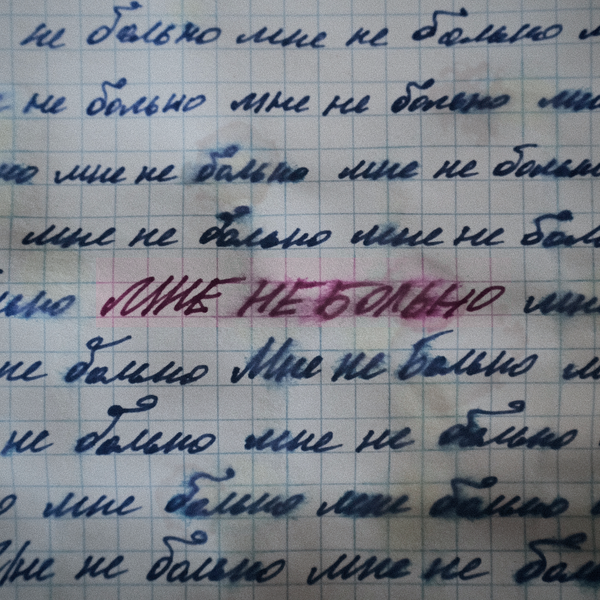 не больно мне не больно м
не больно мне не больно мн
но мне не больно мне не больн
мне не больно мне не бол
льно МНЕ НЕ БОЛЬНО мн
не больно Мне не больно м
не больно мне не больно
о мне больно мне больно
Мне не больно мне не бол